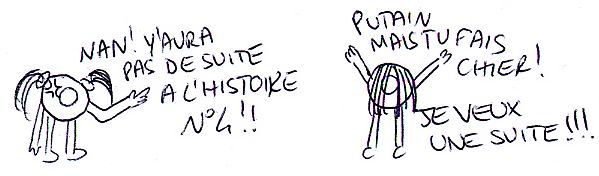 NAN! Y'AURA
PAS DE SUITE
A L'HISTOIRE
N°4!!
PUTAIN
MAIS TU FAIS
CHIER!
JE VEUX
UNE SUITE!!!